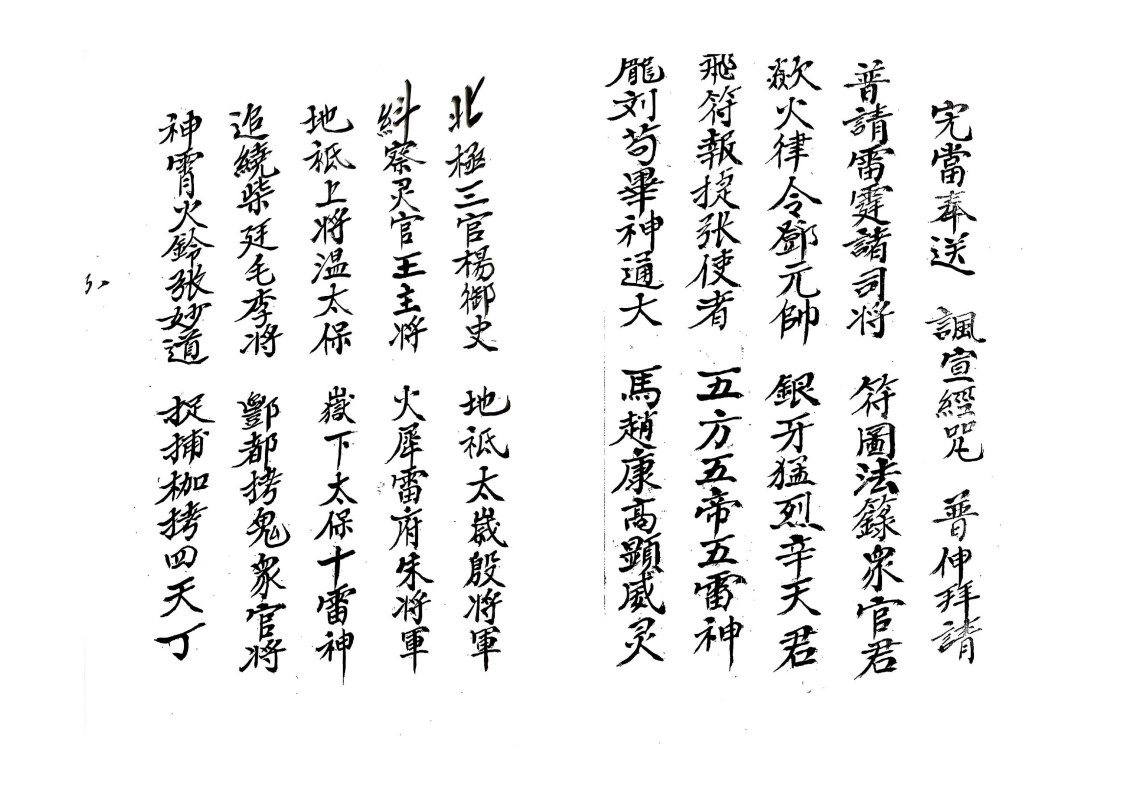 完當奉送 諷宣經咒 普伸拜請
普請雷霆諸司将 符圖法籙衆官君
欻火律令鄧元帥 銀牙猛烈辛天君
飛符報捷张使者 五方五帝五雷神
龐刘苟畢神通大 馬趙康高顕威灵
北極三官楊御史 地祇太歲殷将軍
糾察灵官王主将 火犀雷府朱将軍
地祇上将温太保 嶽下太保十雷神
追繞柴廷毛李将 酆都拷鬼衆官将
神霄火鈴张妙道 捉捕枷拷四天丁